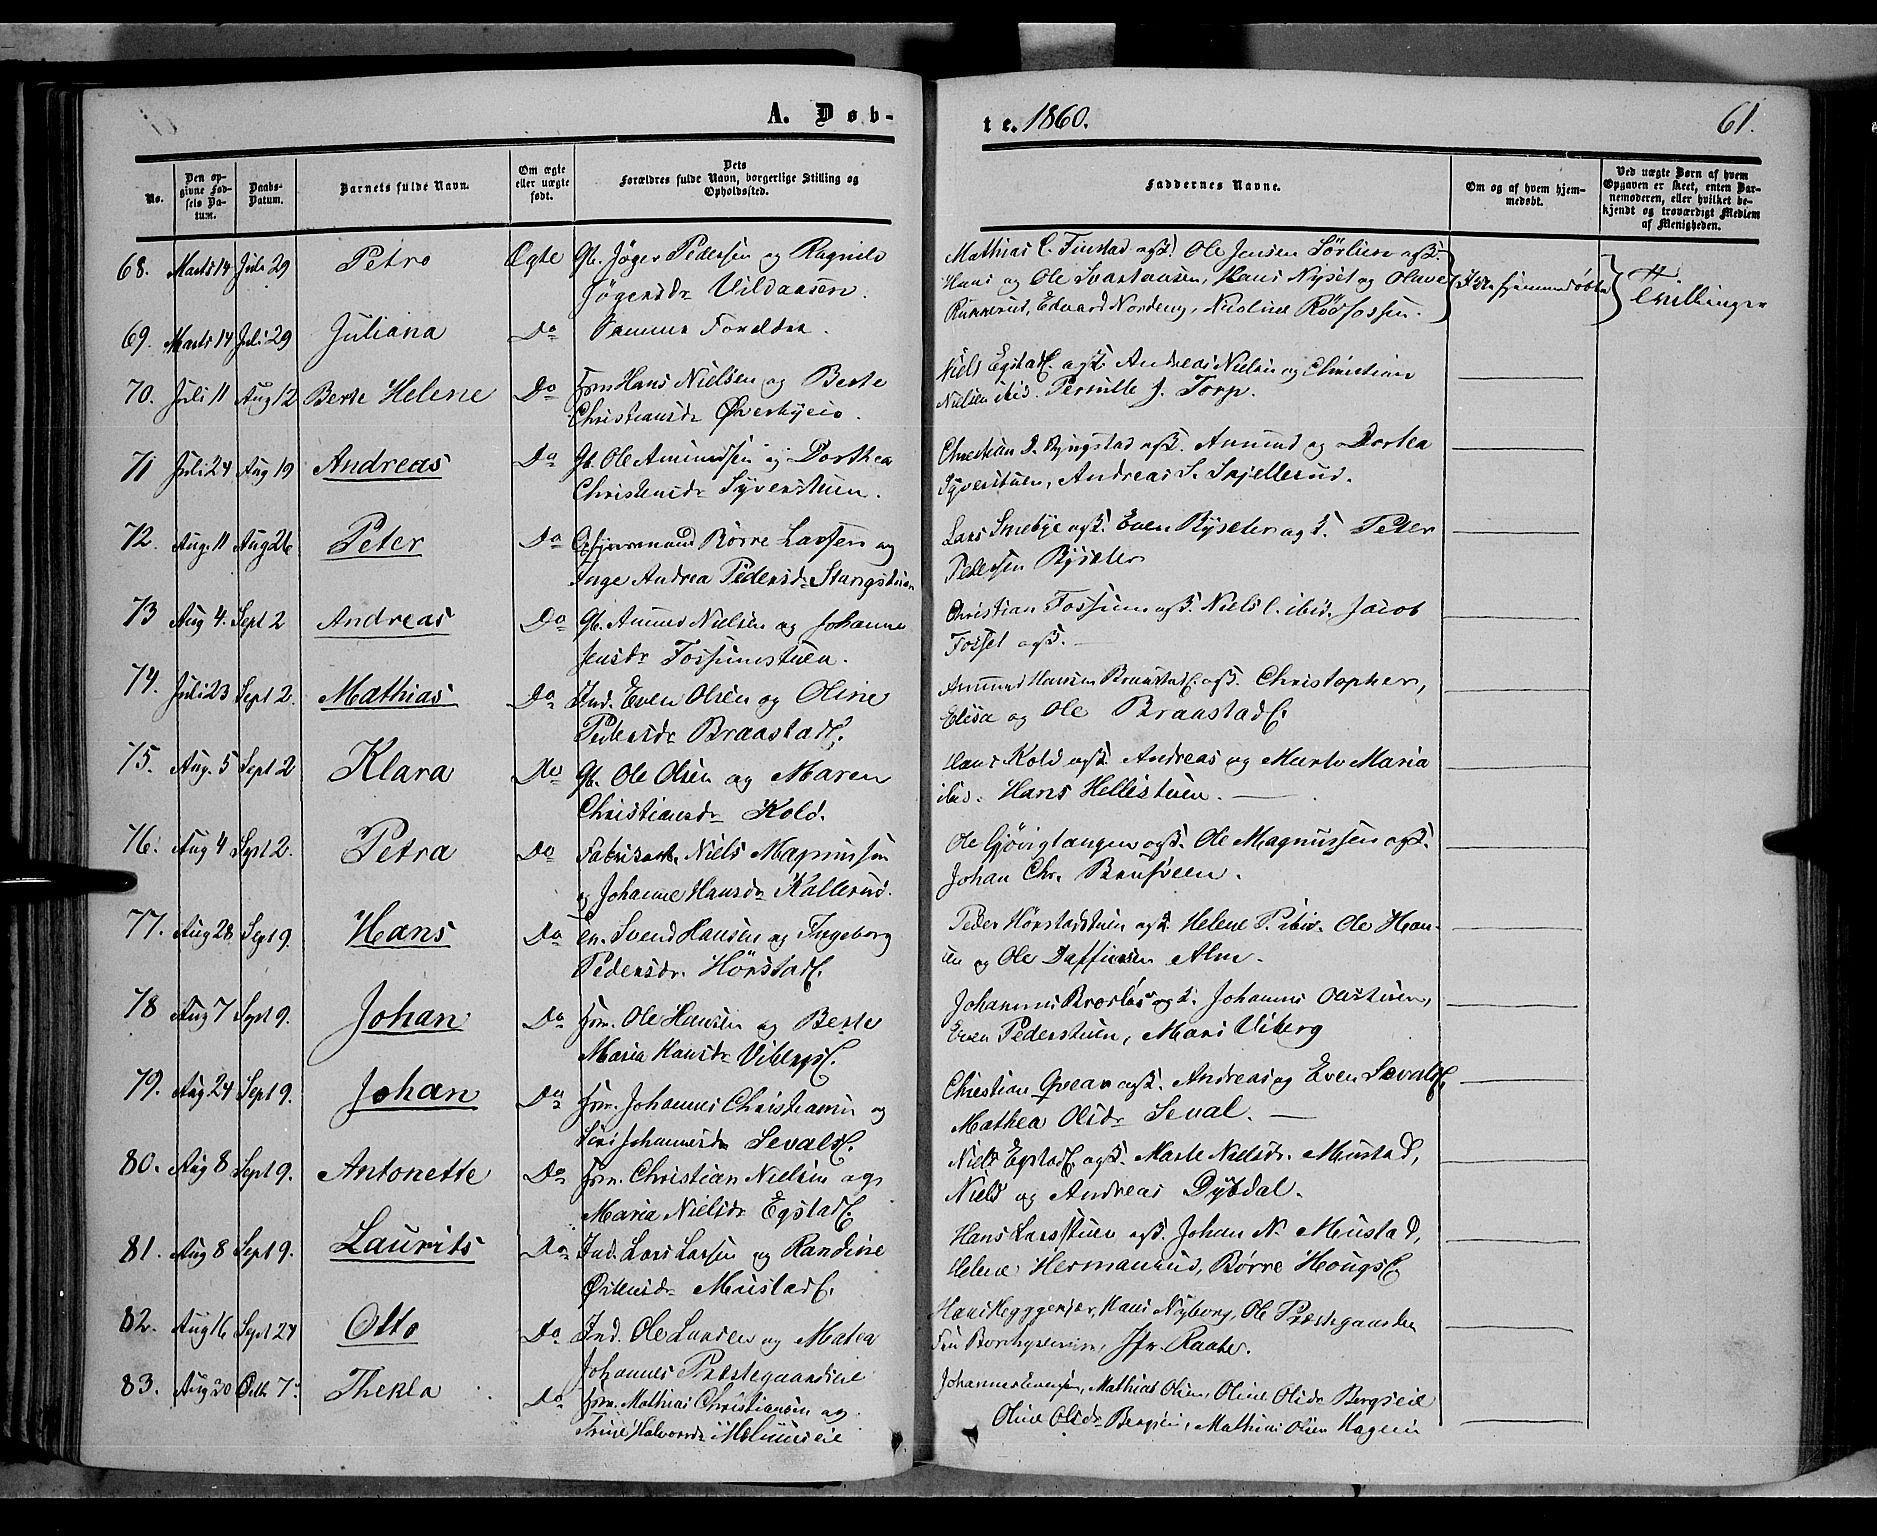 A. Døb-
te. 1860.
61.
No.
Den op-
givne Fød-
sels Da-
tum.
Daabs-
Datum.
Barnets fulde Navn.
Om ægte
eller uægte
født.
Dets
Forældres fulde Navn, borgerlige Stilling og
Opholdssted.
Faddernes Navne.
Om og af hvem hjem-
medøbt.
Ved uægte Børn af hvem
Opgaven er skeet, enten Bar-
nemoderen, eller hvilket be-
kjendt og troværdigt Medlem
af Menigheden.
68. Marts 14 Juli 29 Petro Ægte Gb. Jøger Pedersen og Ragnild
Jøgensdr Vildaasen.
Mathias C. Finstad ogst. Ole Jensen Sørlien ogst.
Hans og Ole Svartaasen, Hans Nyset og Oluve
Rukkerud, Edvard Nordeng, Nicoline Rødfossen.
Tvillinger
69. Marts 14 Juli 29 Juliana Do Samme Forældre.
70. Juli 11 Aug 12 Berte Helene Do Frm Hans Nielsen og Berte
Christiansdr Øverbyeie.
Niels Egstad ogst. Andreas Nielsen og Christian
Nielsen ibid. Pernille J. Torp.
71 Juli 24 Aug 19 Andreas Do Gb. Ole Amundsen og Dorthea
Christensdr Syverstuen.
Christian D. Ryngstad ogst. Amund og Dortea
Syverstuen, Andreas S. Snjellerud.
72. Aug. 11 Aug 26 Peter Do Børre Larsen og
Inge Andrea Pedersdr Stangstuen
Lars Smebye ogst. Even Byseter ogst. Peter
Pedersen Byseter
73 Aug 4. Sept 2 Andreas Do Gb. Amund Nielsen og Johanne
Jensdr Fossumstuen.
Christian Fossum ogst. Niels C. ibid. Jacob
Fosset ogst.
74. Juli 23 Sept 2. Mathias Do Ind. Even Olsen og Oline
Pedersdr Braastad.
Amund Hansen Braastad. ogst. Christopher,
Elisa og Ole Braastad.
75. Aug. 5 Sept 2 Klara Do Gb. Ole Olsen og Maren
Christiansdr Kold.
Hans Kold ogst. Andreas og Marte Maria
ibid. Hans Hellistuen.
76. Aug 4 Sept 2. Petra Do Niels Magnussen
og Johanne Hansdr Kallerud.
Ole Gjøvigtangen ogst. Ole Magnussen ogst.
Johan Chr. Brufveen.
77. Aug 28 Sept 9. Hans Do Svend Hansen og Ingeborg
Pedersdr. Hørstad.
Peder Hørstadstuen ogst. Helene P. ibid. Ole Han-
sen og Ole Daffinsen Alm.
78 Aug 7 Sept 9. Johan Do Frm. Ole Hansen og Berte
Maria Hansdr
Even Pederstuen, Mari Viberg
79. Aug 24 Sept 9. Johan Do Frm. Johannes Christiansen og
Siri Johannesdr Sevalse.
Christian ogst. Andreas og Even Sevalse
Mathea Olsdr Seval.
80. Aug 8 Sept 9. Antonette Do Frm. Christian Nielsen og
Maria Nielsdr Egstad.
Niels Egstad ogst. Marte Nielsdr. Mustad,
Niels og Andreas Dybdal.
81. Aug 8 Sept 9. Laurits Do Ind. Lars Larsen og Randine
Østensdr Mustad.
Hans Larsstuen ogst. Johan N. Mustad,
Helene Hermanrud, Børre Hougs.
82. Aug 16 Sept 24 Otto Do Ind. Ole Larsen og Matea
Johannes Præstegaardseie
Hans Heggenjær, Hans Nyborg, Ole Præstegaardseie
Jfr. Raabe.
83. Aug 20 Octb 7. Thekla Do Frm. Mathias Christiansen og
Trine Halvorsdr
Johannes Evensen, Mathias Olsen, Oline Olsdr Bergseie
Oline Olsdr Bergseie, Mathias Olsen Hageeie